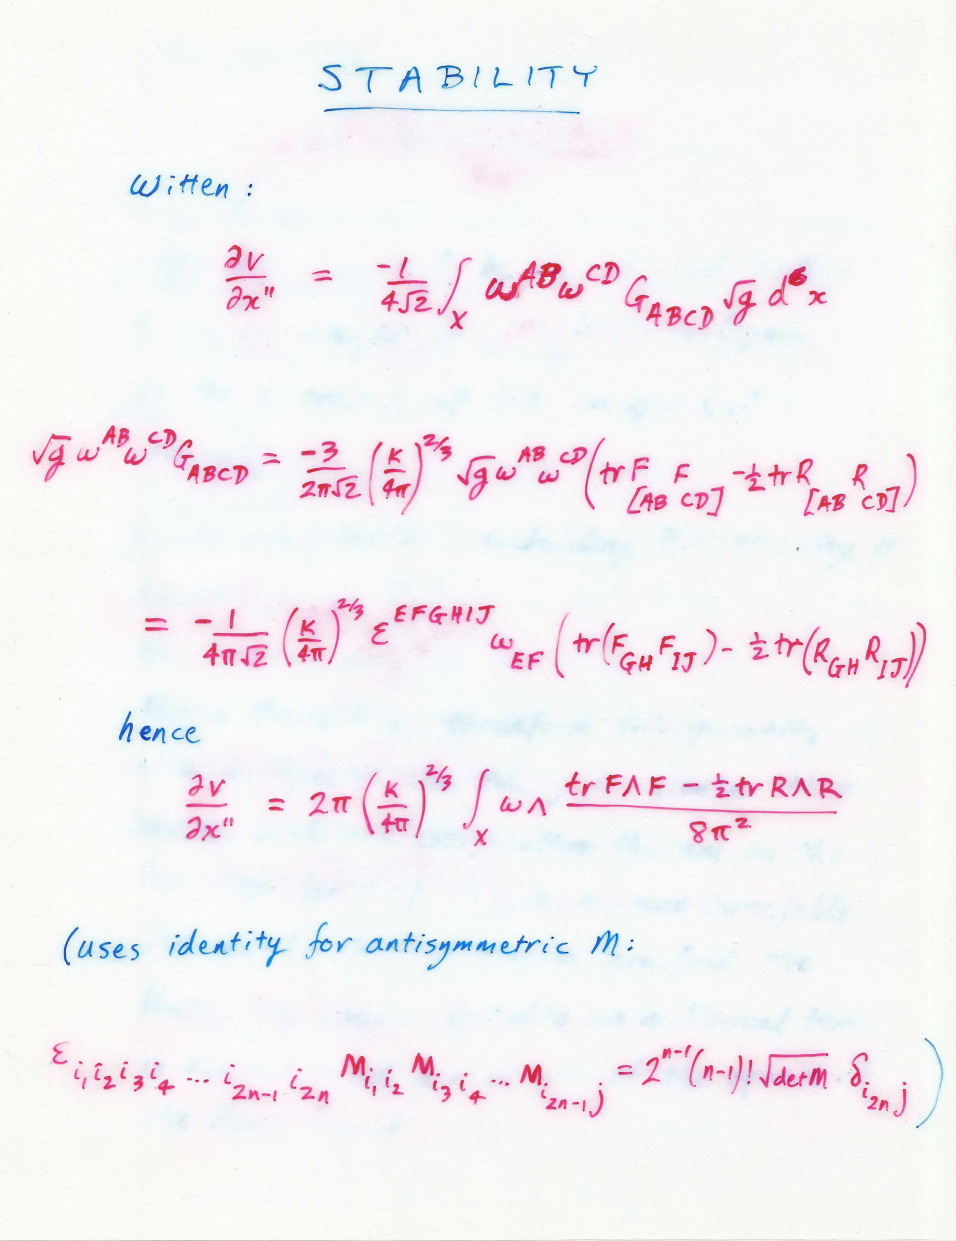 STABILITY
Witten:
∂V/∂x¹¹ = -1/(4√2) ∫_X ω^{AB} ω^{CD} G_{ABCD} √g d⁶x
√g ω^{AB} ω^{CD} G_{ABCD} = -3/(2π√2) (κ/4π)^{2/3} √g ω^{AB} ω^{CD} (tr F_{[AB} F_{CD]} - ½ tr R_{[AB} R_{CD]})
= -1/(4π√2) (κ/4π)^{2/3} ε^{EFGHIJ} ω_{EF} (tr(F_{GH} F_{IJ}) - ½ tr(R_{GH} R_{IJ}))
hence
∂V/∂x¹¹ = 2π (κ/4π)^{2/3} ∫_X ω∧ (tr F∧F - ½ tr R∧R)/(8π²)
(uses identity for antisymmetric M:
ε_{i₁i₂i₃i₄ ... i_{2n-1} i_{2n}} M_{i₁i₂} M_{i₃i₄} ... M_{i_{2n-1} j} = 2^{n-1} (n-1)! √det M δ_{i_{2n} j})